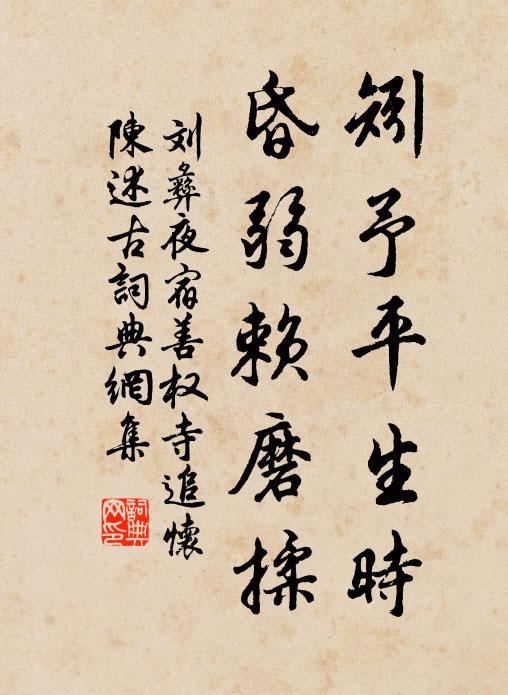 矧予平生時
昏弱赖磨揉
刘彝夜宿善权寺追懷
陳述古詞典網集
詞典网印